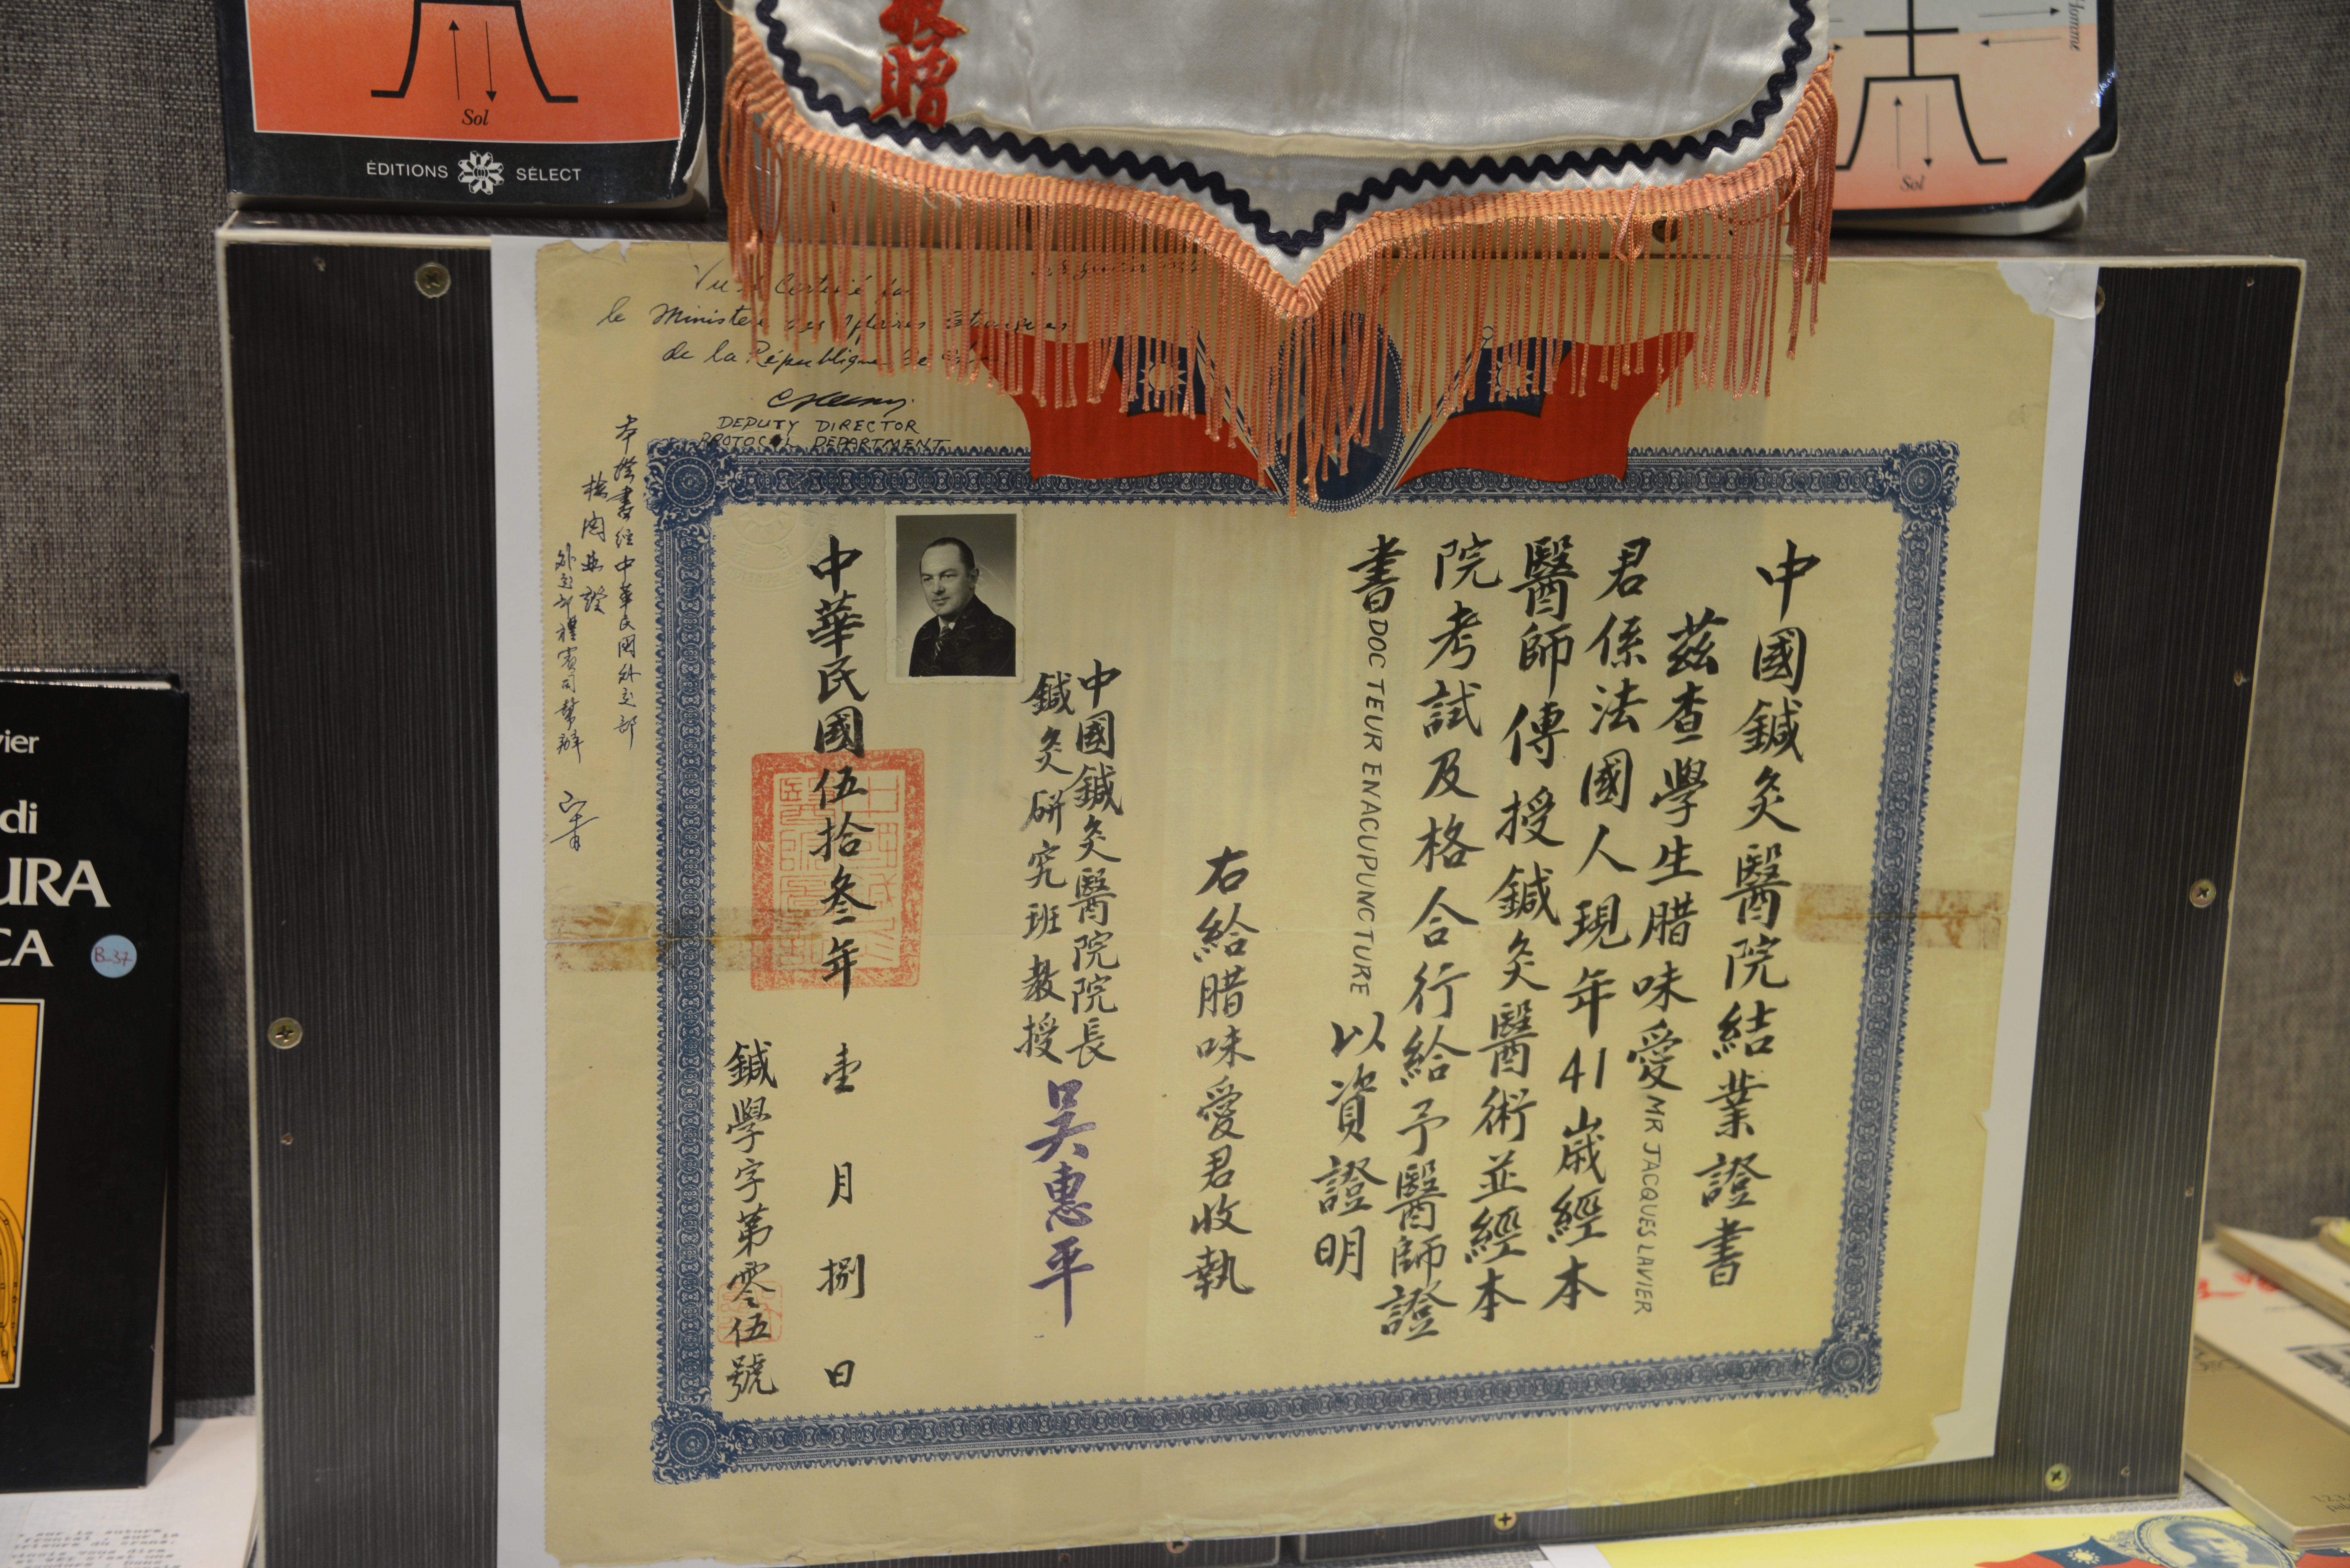 Sol
ÉDITIONS SÉLECT
贈
Homme
Sol
le Ministère des Affaires Etrangères
de la République de
DEPUTY DIRECTOR
PROTOCOL DEPARTMENT
中國鍼灸醫院結業證書
茲查學生腊味愛 MR JACQUES LAVIER
君係法國人現年41歲經本
醫師傳授鍼灸醫術並經本
院考試及格合行給予醫師證
書 DOCTEUR EN ACUPUNCTURE 以資證明
右給腊味愛君收執
中國鍼灸醫院院長
鍼灸研究班教授
吳惠平
中華民國伍拾叁年壹月捌日
鍼學字第零伍號
本證書經中華民國外交部
外交部禮賓司幫辦
vier
di
URA
CA
B-37